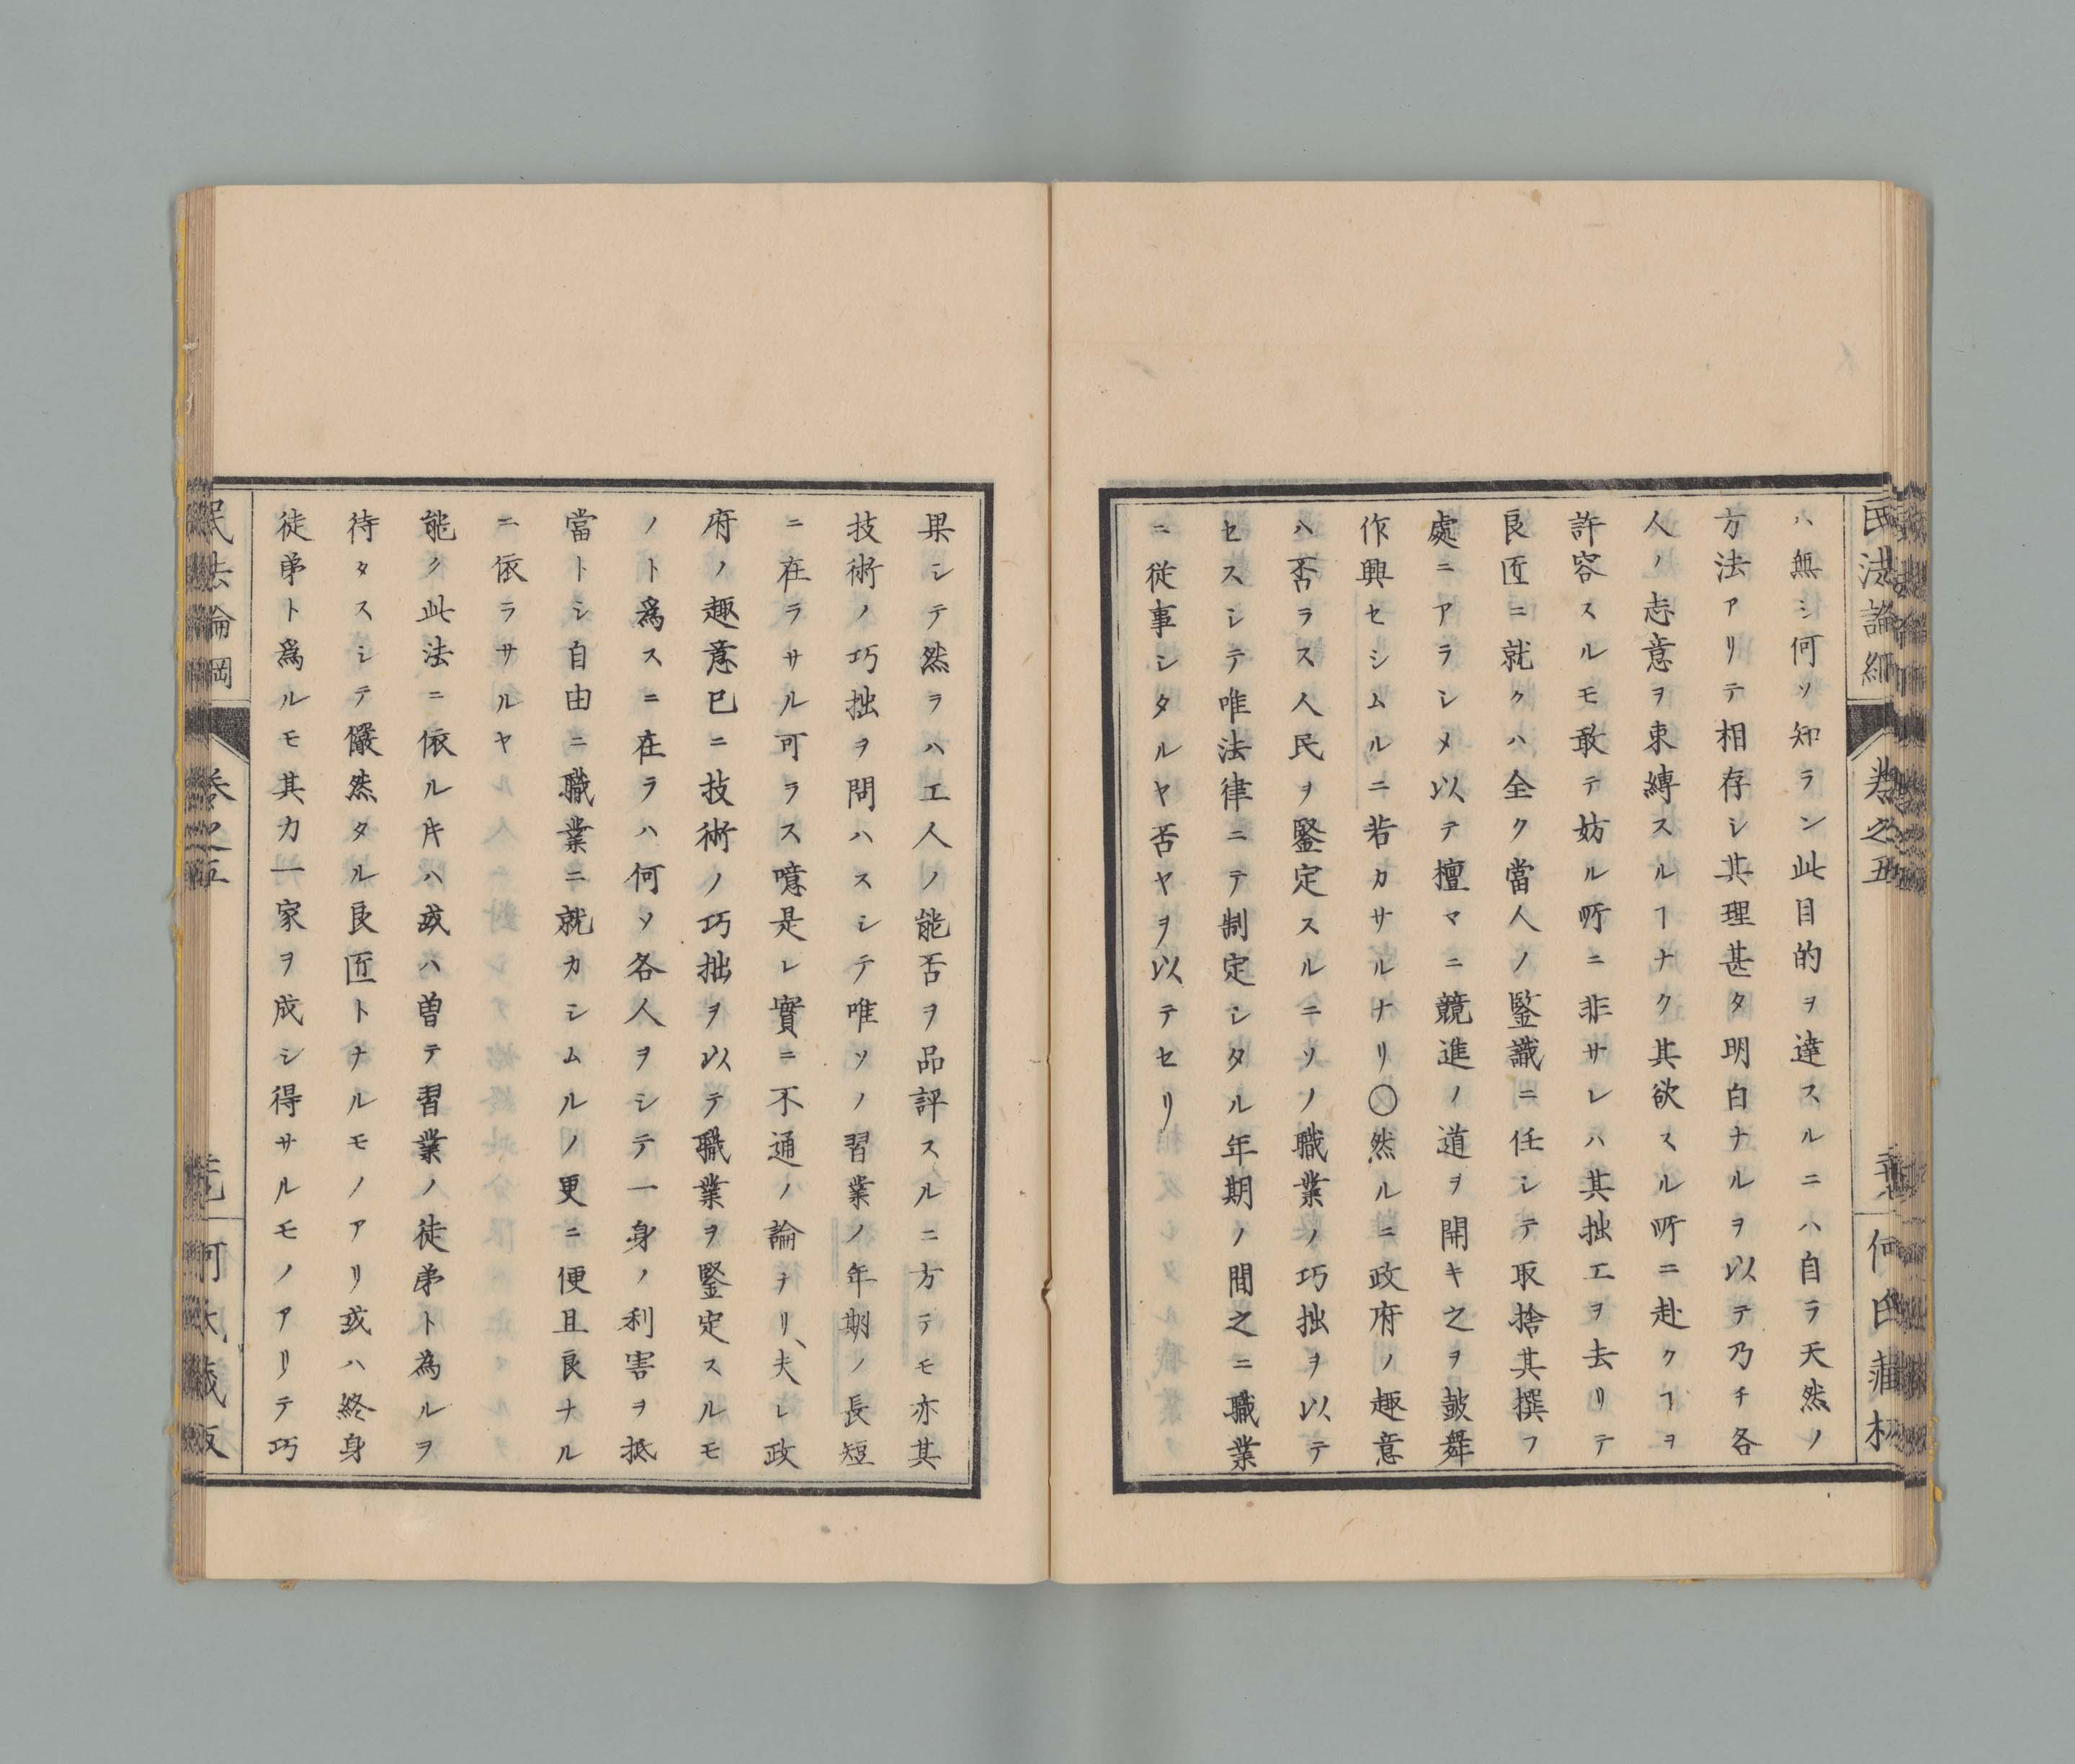 ハ無シ何ソ知ラン此目的ヲ達スルニハ自ラ天然ノ
方法アリテ相存シ其理甚タ明白ナルヲ以テ乃チ各
人ノ志意ヲ束縛スルヿナク其欲スル所ニ赴クヿヲ
許容スルモ敢テ妨ル所ニ非サレハ其拙工ヲ去リテ
良匠ニ就クハ全ク當人ノ鑒識ニ任シテ取捨其撰フ
處ニアラシメ以テ擅マニ競進ノ道ヲ開キ之ヲ鼓舞
作興セシムルニ若カサルナリ○然ルニ政府ノ趣意
ハ否ラス人民ヲ鑒定スルニソノ職業ノ巧拙ヲ以テ
セスシテ唯法律ニテ制定シタル年期ノ間之ニ職業
ニ従事シタルヤ否ヤヲ以テセリ
果シテ然ラハ工人ノ能否ヲ品評スルニ方テモ亦其
技術ノ巧拙ヲ問ハスシテ唯ソノ習業ノ年期ノ長短
ニ在ラサル可ラス噫是レ實ニ不通ノ論ナリ、夫レ政
府ノ趣意已ニ技術ノ巧拙ヲ以テ職業ヲ鑒定スルモ
ノト爲スニ在ラハ何ソ各人ヲシテ一身ノ利害ヲ抵
當トシ自由ニ職業ニ就カシムルノ更ニ便且良ナル
ニ依ラサルヤ
能ク此法ニ依ル𪜈ハ或ハ曽テ習業ノ徒弟ト為ルヲ
待タスシテ儼然タル良匠トナルモノアリ或ハ終身
徒弟ト爲ルモ其力一家ヲ成シ得サルモノアリテ巧
民法論綱
巻之五
何氏蔵板